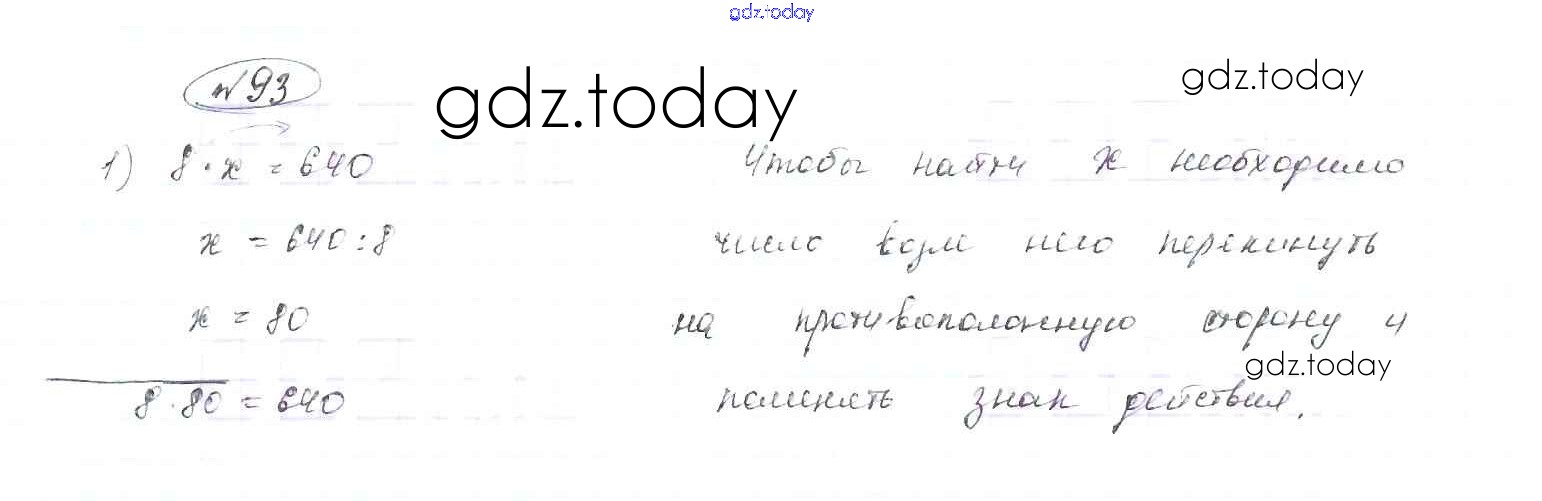 gdz.today
№93
gdz.today
gdz.today
1) 8 · x = 640
x = 640 : 8
x = 80
8 · 80 = 640
Чтобы найти x необходимо
число возле него перекинуть
на противоположную сторону и
gdz.today
поменять знак действия.